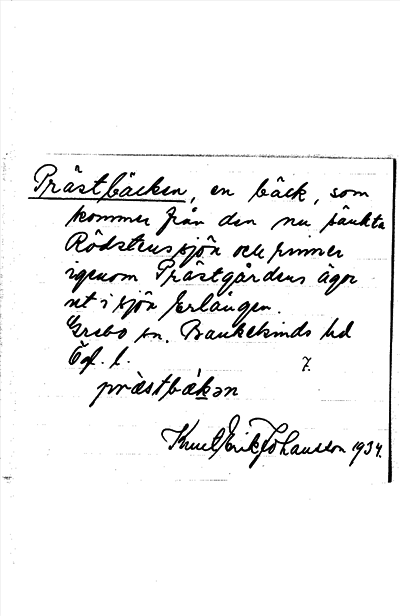 Prästbäcken, en bäck, som
kommer från den nu sänkta
Rödstenssjön och rinner
igenom Prästgårdens ägor
ut i sjön Erlången.
Grebo sn. Bankekinds hd
Ög. l. 7.
præ̀stbæ̀kən
Knut Erik Johansson 1934.